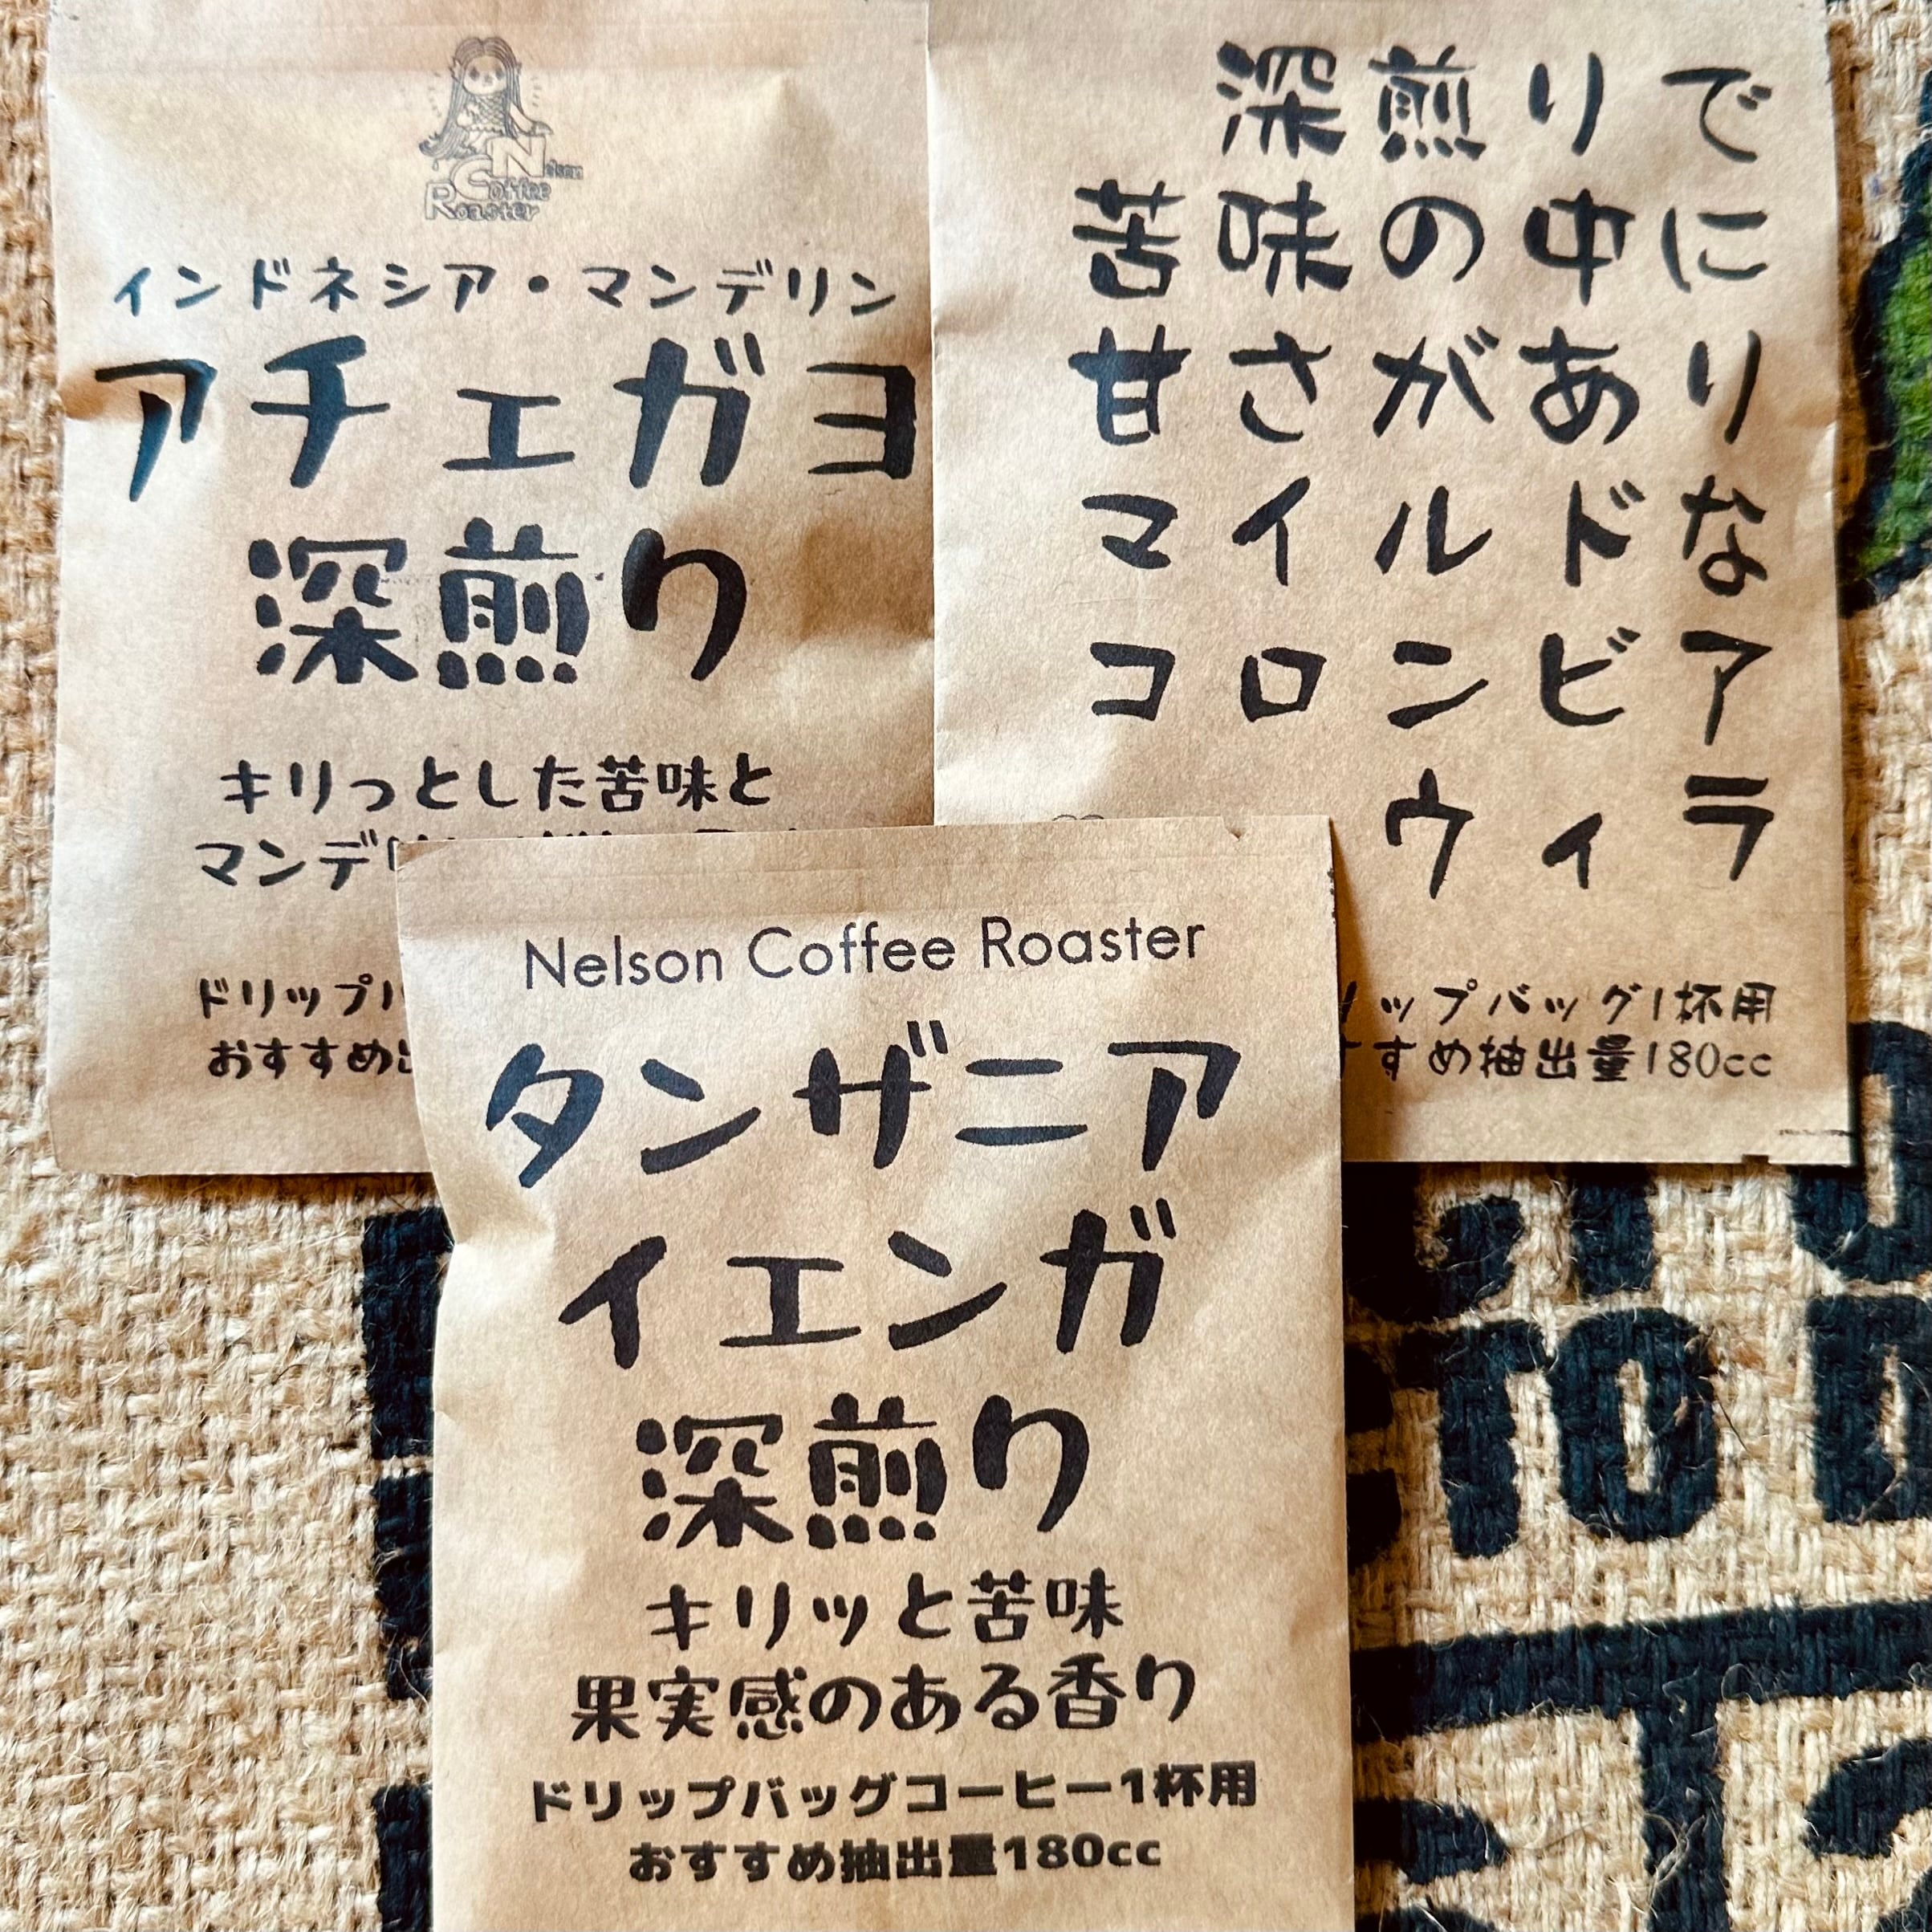 Nelson
Coffee
Roaster
インドネシア・マンデリン
アチェガヨ
深煎り
キリっとした苦味と
マンデリン
ドリップバ
おすすめ
深煎りで
苦味の中に
甘さがあり
マイルドな
コロンビア
ウィラ
リップバッグ1杯用
すすめ抽出量180cc
Nelson Coffee Roaster
タンザニア
イエンガ
深煎り
キリッと苦味
果実感のある香り
ドリップバッグコーヒー1杯用
おすすめ抽出量180cc
TO